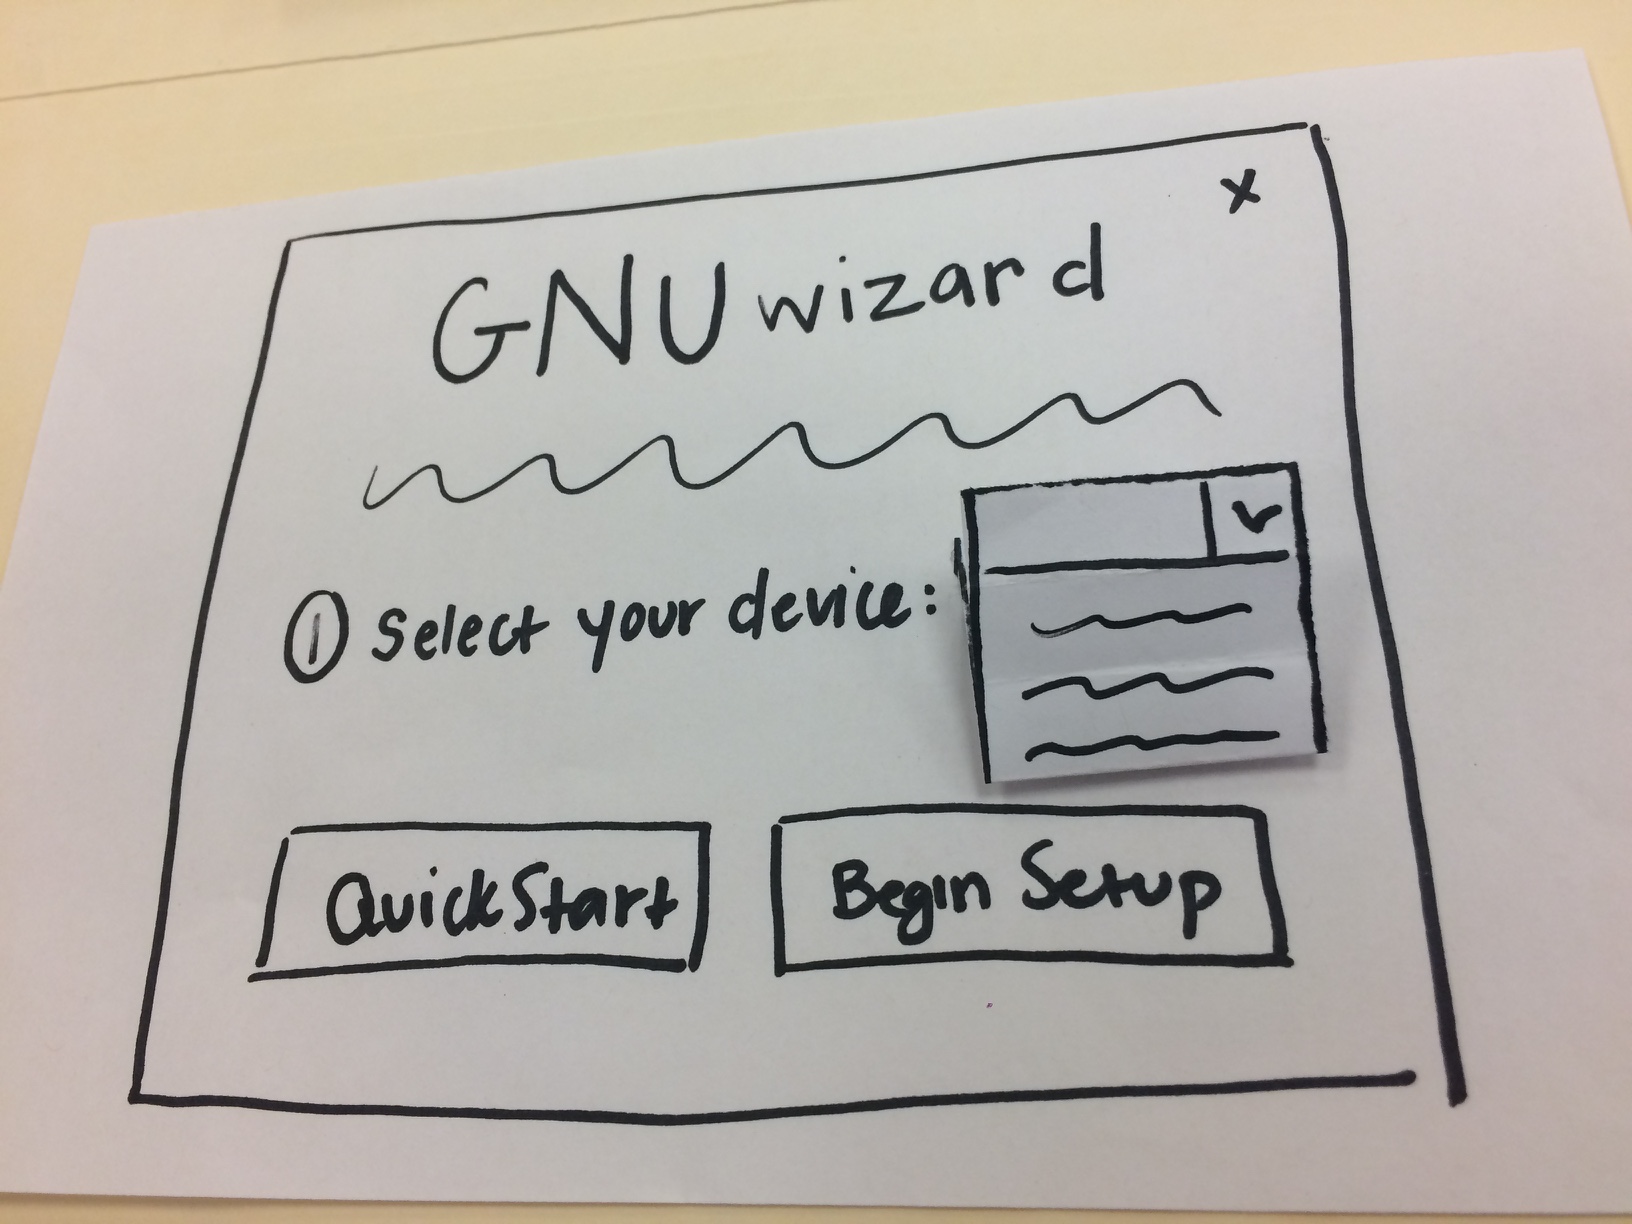 x
GNU wizard
① Select your device:
QuickStart
Begin Setup